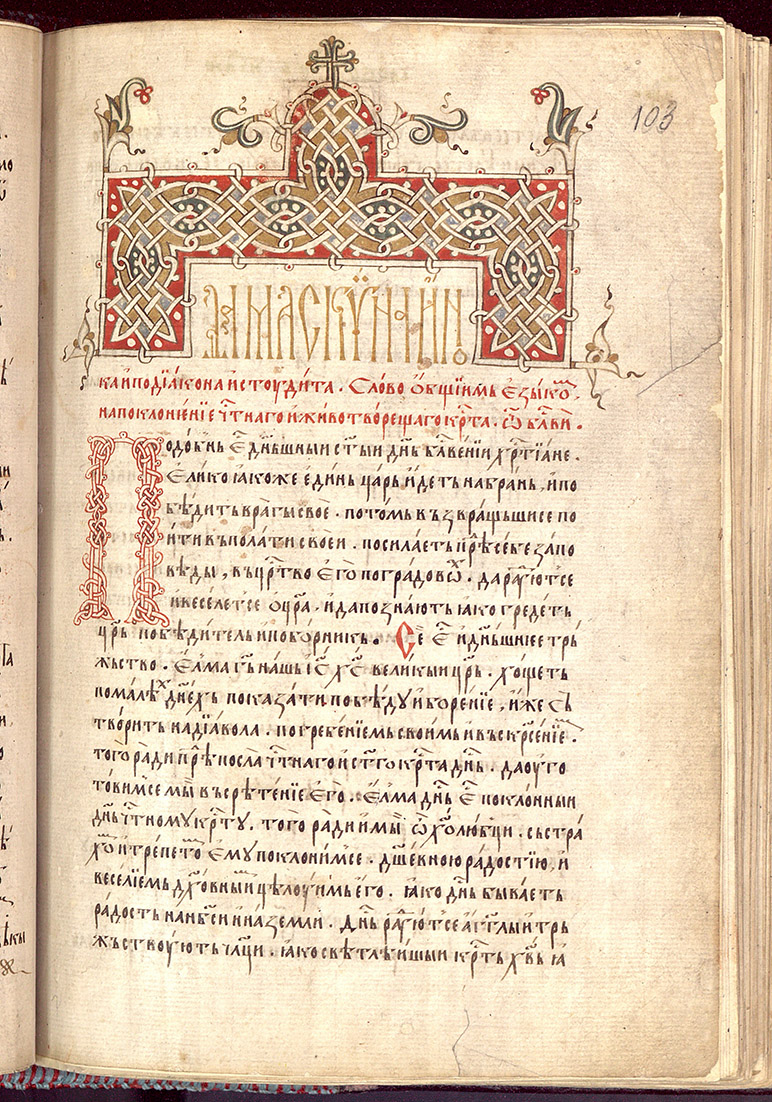 103
Дамаскѵна ѵпо
каиподїакона и стоудита. Слово ѻбщїимь езыкѡ,
на поклоненїе чⷭ҇тнаго и животворещаго крⷭ҇та. Ѿ бл҃ви.
Подобнь е҆ⷭ дн҃ьшныи ст҃ыи дн҃ь бл҃веніи хрⷭ҇тїане.
Елико ꙗкоже единь царь идеть на брань, и по
бѣдить врагы свое. потомь възвращьшисе по
ити въ полати своеи. посилаеть прѣⷤ себе запо
вѣды, въ црⷭ҇тво его по градовѡⷯ. да раⷣуютсе
и веселетсе ѹ҆ цр҃а. и да познають ꙗко гредеть
цр҃ь побѣдитель и поборникь. Се еⷭ҇ и дн҃ьшнее трь
жьство. Елма г҃ь нашь і҆с х҃с великыи цр҃ь. хощеть
по малѣⷯ дн҃ехь показати побѣду и бореніе, иже сь
твѡрить на дїавола. погребенїемь своимь и въскрⷭ҇енїеⷨ.
того ради прѣⷤ посла чⷭ҇тнаго и ст҃го крⷭ҇та дн҃ь. да оуго
товимсе мы въ срѣтенїе его. Елма дн҃ь еⷭ҇ поклонныи
дн҃ь чⷭ҇тному крⷭ҇ту. того ради и мы ѽ хⷭ҇олюбци. сьстра
хоⷨ и трепетоⷨ ему поклонимсе. дш҃евною радостїю, и
веселїемь дх҃овныⷨ цѣлоуимь его. ꙗко дн҃ь бываеть
радость на нб҃си и на земли. дн҃ь раⷣуютсе агг҃лы и трь
жьствоують чл҃ци. ꙗко свѣтлѣишыи крⷭ҇ть хв҃ь ꙗ